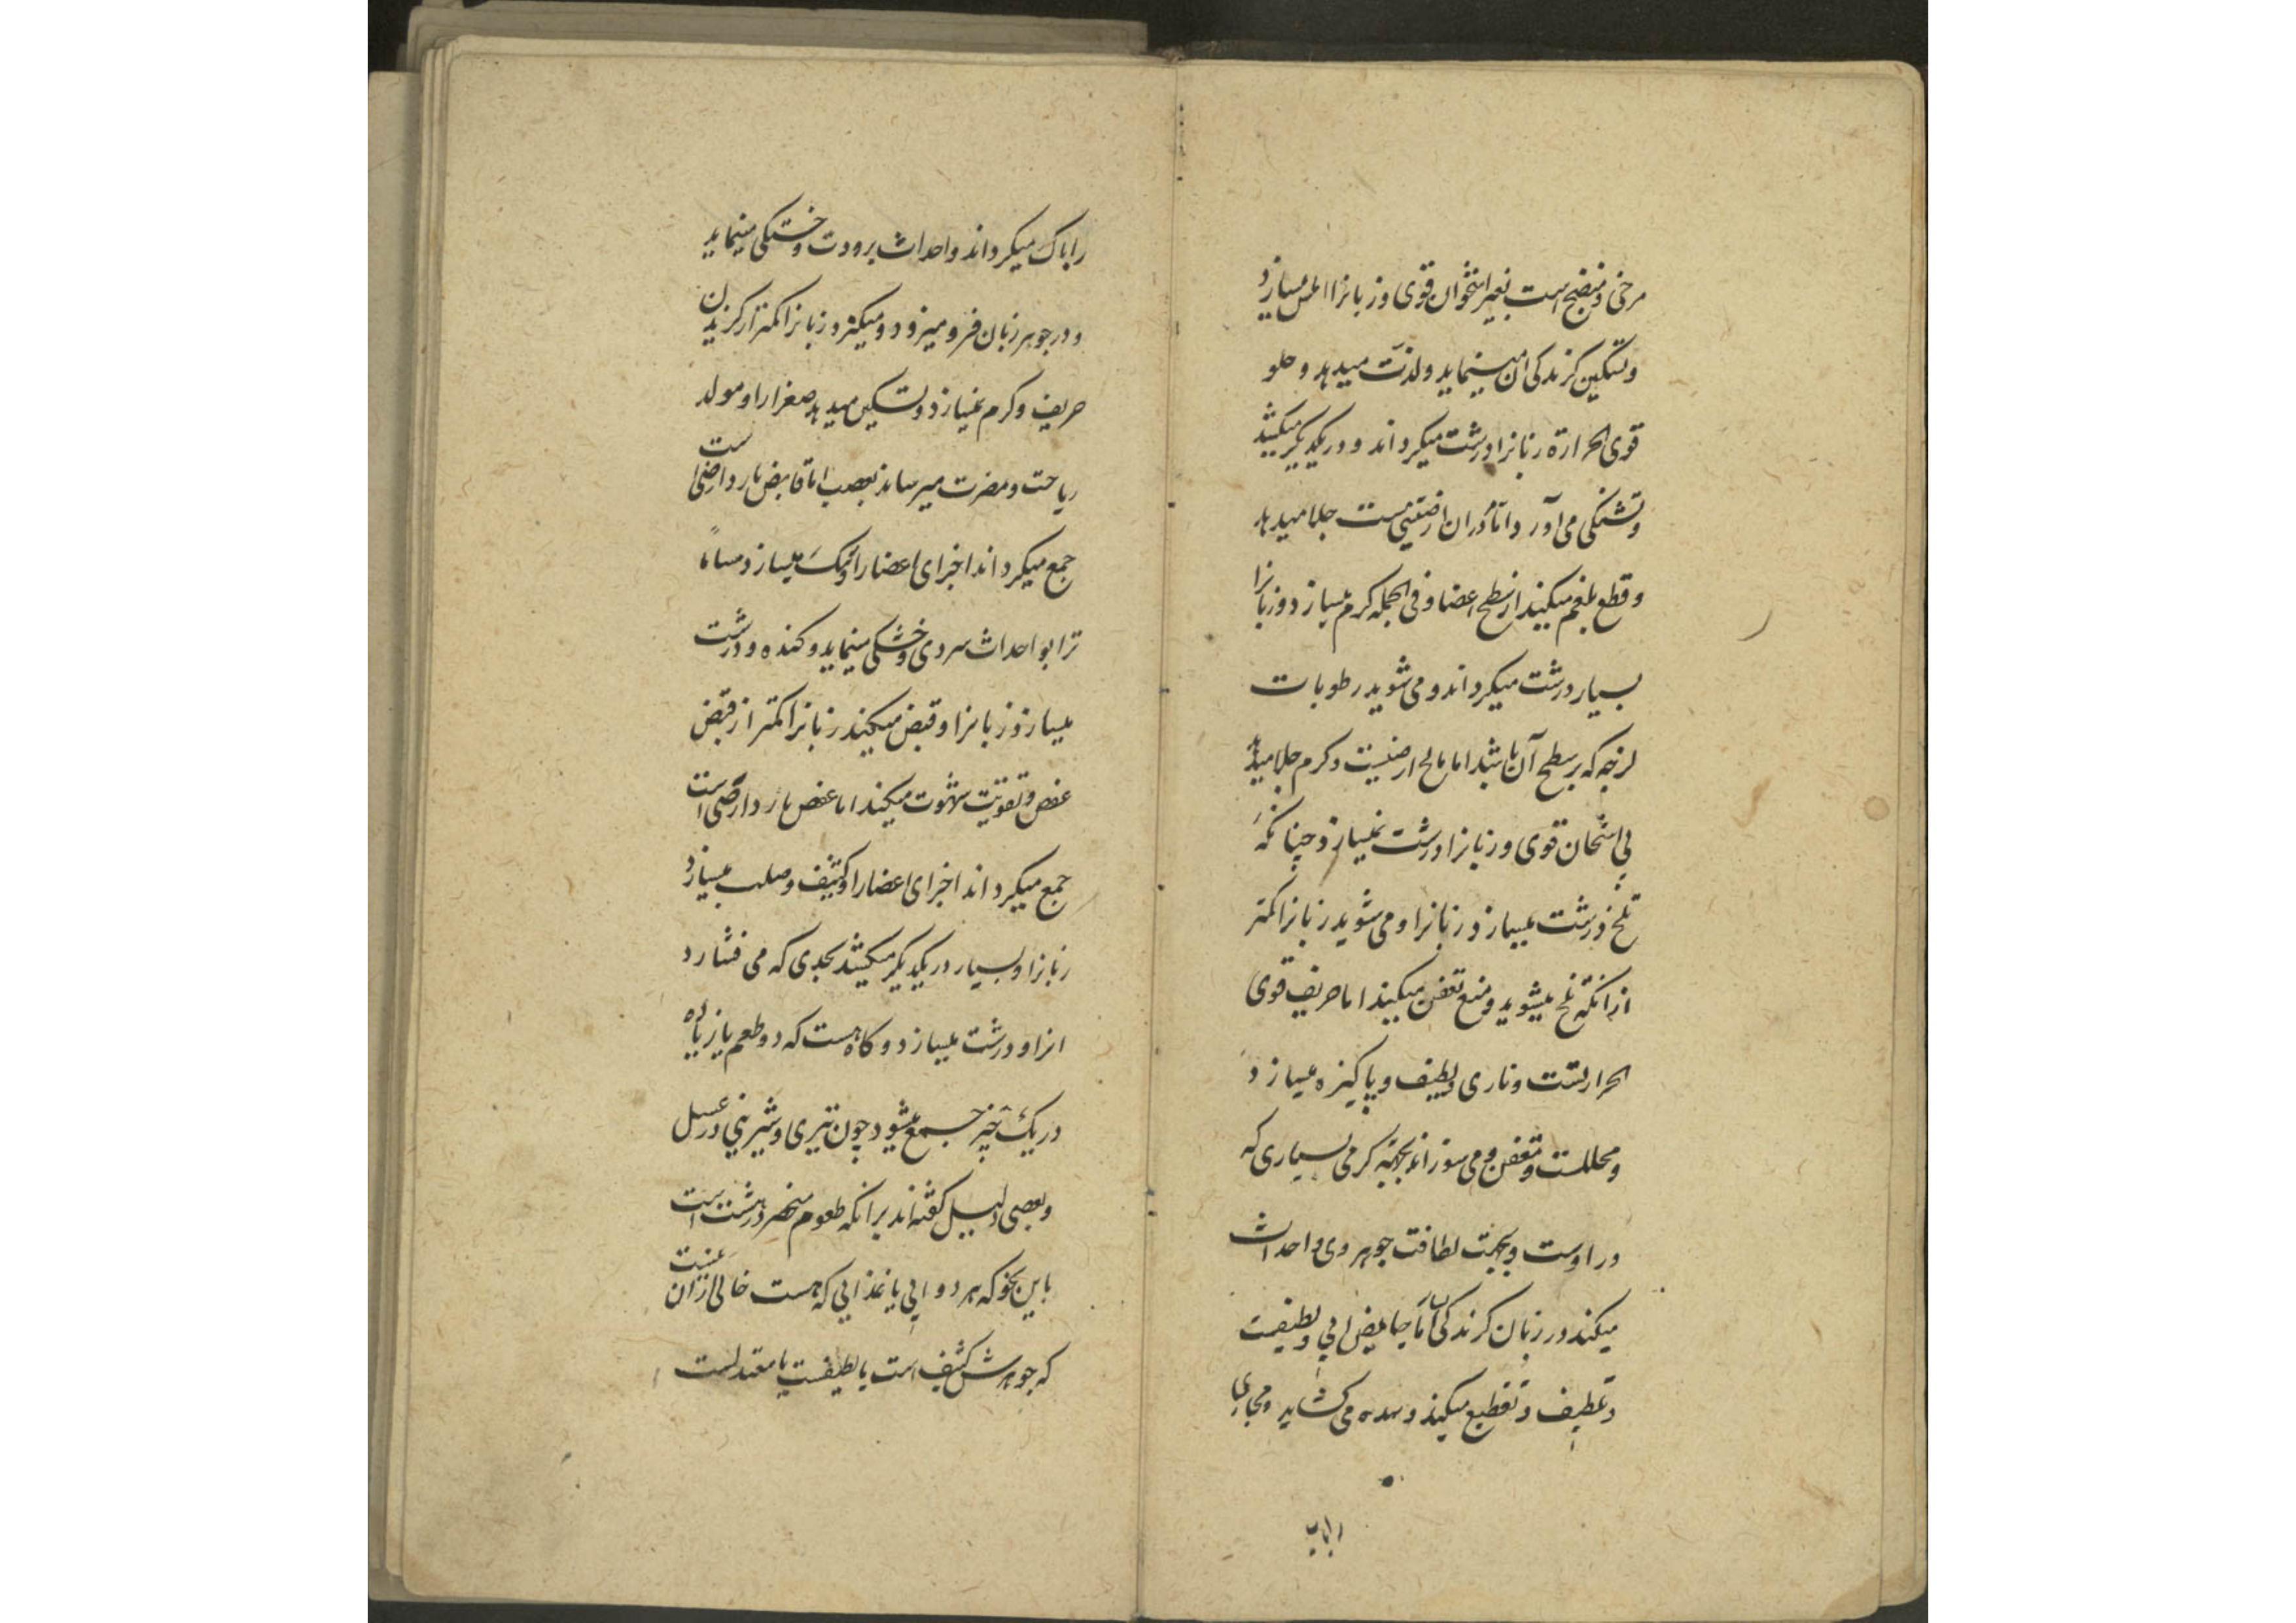 مرخی و منضج است بغیر استخوان قوی و زبانرا املس میسازد
و تسکین کزندکی ان مینماید و لذت میدهد و حلو
قوی الحرارة زبانرا درشت میکرداند و در یکدیکر میکشد
و تشنکی می آورد اما مر ان ارضیتی ست جلا میدهد
و قطع بلغم میکند از سطح اعضا و فی الجمله کرم میسازد و زبانرا
بسیار درشت میکرداند و می شوید رطوبات
لزجه که بر سطح آن باشد اما مالح ارضیست و کرم جلا میدهد
بی اسخان قوی و زبانرا درشت نمیسازد چنانکه
تلخ درشت میسازد زبانرا و می شوید زبانرا کمتر
از انکه تلخ میشوید و منع تعفن میکند اما حریف قوی
الحرارتست و ناری و لطیف و پاکیزه میسازد
و محللست و معفن و می سوزاند بجهة کرمی بسیاری که
در اوست و بجهت لطافت جوهر وی و احداث
میکند در زبان کزندکی اما حامض ابی و لطیفست
و تلطیف و تقطیع میکند و سده می کشاید و مجاری
را پاک میکرداند و احداث برودت و خشکی مینماید
و در جوهر زبان فرو میرود و میکزد زبانرا کمتر از کزیدن
حریف و کرم نمیسازد و تسکین میدهد صفرا را و مولد
ریاحست و مضرت میرساند بعصب اما قابض بارد ارضی است
جمع میکرداند اجزای اعضا را و تنک میسازد مسام
ترا بو احداث سردی و خشکی مینماید و کنده و درشت
میسازد زبانرا و قبض میکند زبانرا کمتر از قبض
عفص و تقویت شهوت میکند اما عفص بارد ارضی است
جمع میکرداند اجزای اعضا را و کثیف و صلب میسازد
زبانرا و بسیار در یکدیکر میکشد بحدی که می فشارد
انرا و درشت میسازد و کاه هست که دو طعم یا زیاده
در یک چیز جمع میشود چون تیزی و شیرینی در عسل
و بعضی دلیل کفته اند بر انکه طعوم منحصر در هشت است
باین نحو که هر دوایی یا غذایی که هست خالی از ان نیست
که جوهرش کثیف است یا لطیفست یا معتدلست